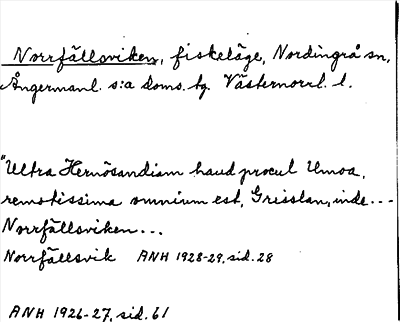 Norrfällsviken, fiskeläge, Nordingrå sn,
Ångermanl. s:a doms. bg. Västernorrl. l.
"Ultra Hernösandiam haud procul Umoa,
remotissima omnium est, Grisslan, inde...
Norrfällsviken...
Norrfällsvik ANH 1928-29, sid. 28
ANH 1926-27, sid. 61